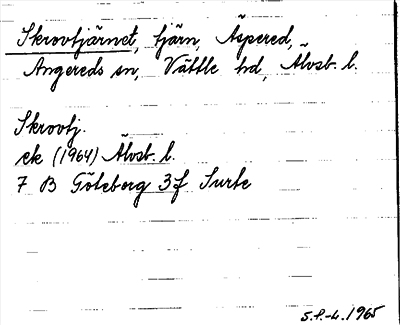 Skrovtjärnet, tjärn, Äspered,
Angereds sn, Vättle hd, Älvsb. l.
Skrovtj.
ek (1964) Älvsb. l.
7 B Göteborg 3f Surte
S.F.-L. 1965